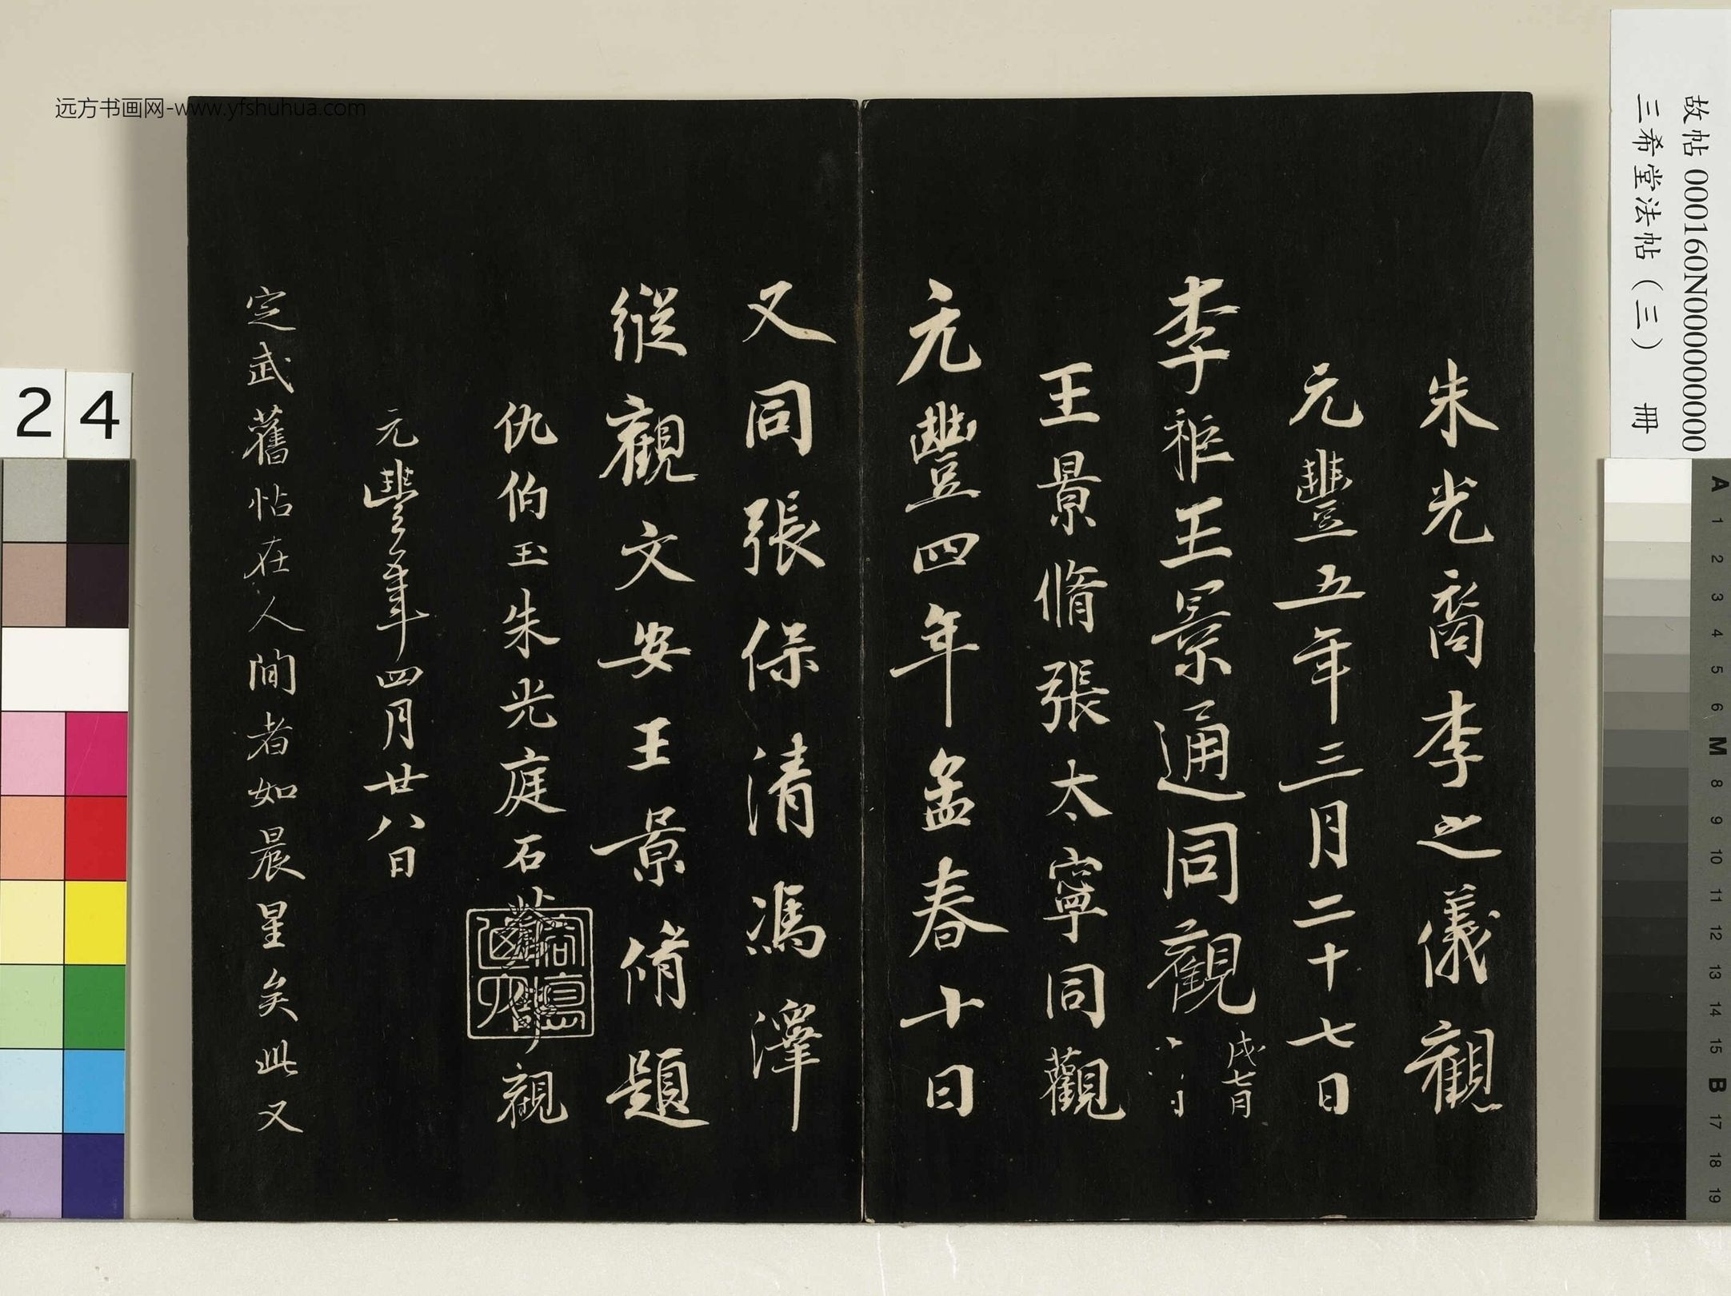 远方书画网-www.yfshuhua.com
故帖 000160N000000000
三希堂法帖（三） 冊
朱光裔李之儀觀
元豐五年三月二十七日
李秠王景通同觀
戊七月
八日
王景脩張太寧同觀
元豐四年孟春十日
又同張保清馮澤
縱觀文安王景脩題
仇伯玉朱光庭石蒼舒觀
元豐年四月廿八日
定武舊帖在人間者如晨星矣此又
24
A
1
2
3
4
5
6
M
8
9
10
11
12
13
14
15
B
17
18
19